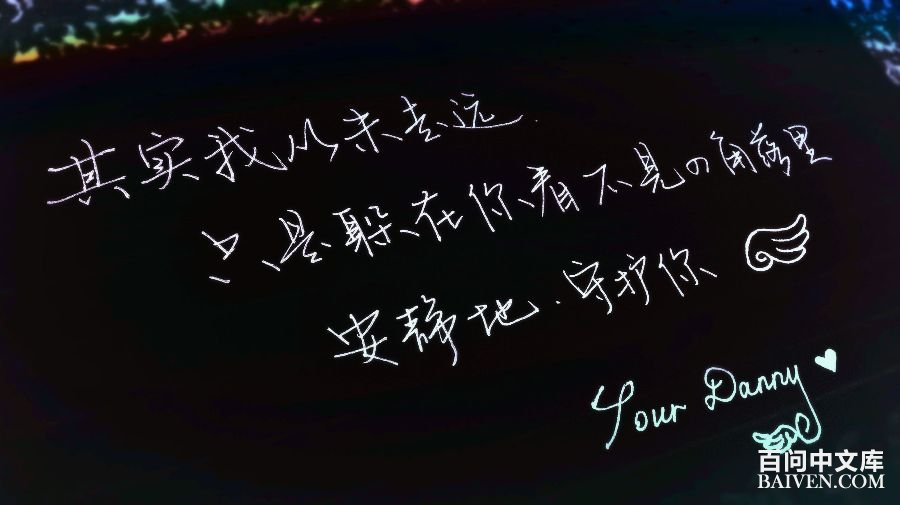 其实我从未走远.
只是躲在你看不见の角落里
安静地.守护你
Your Danny
百问中文库
BAIVEN.COM